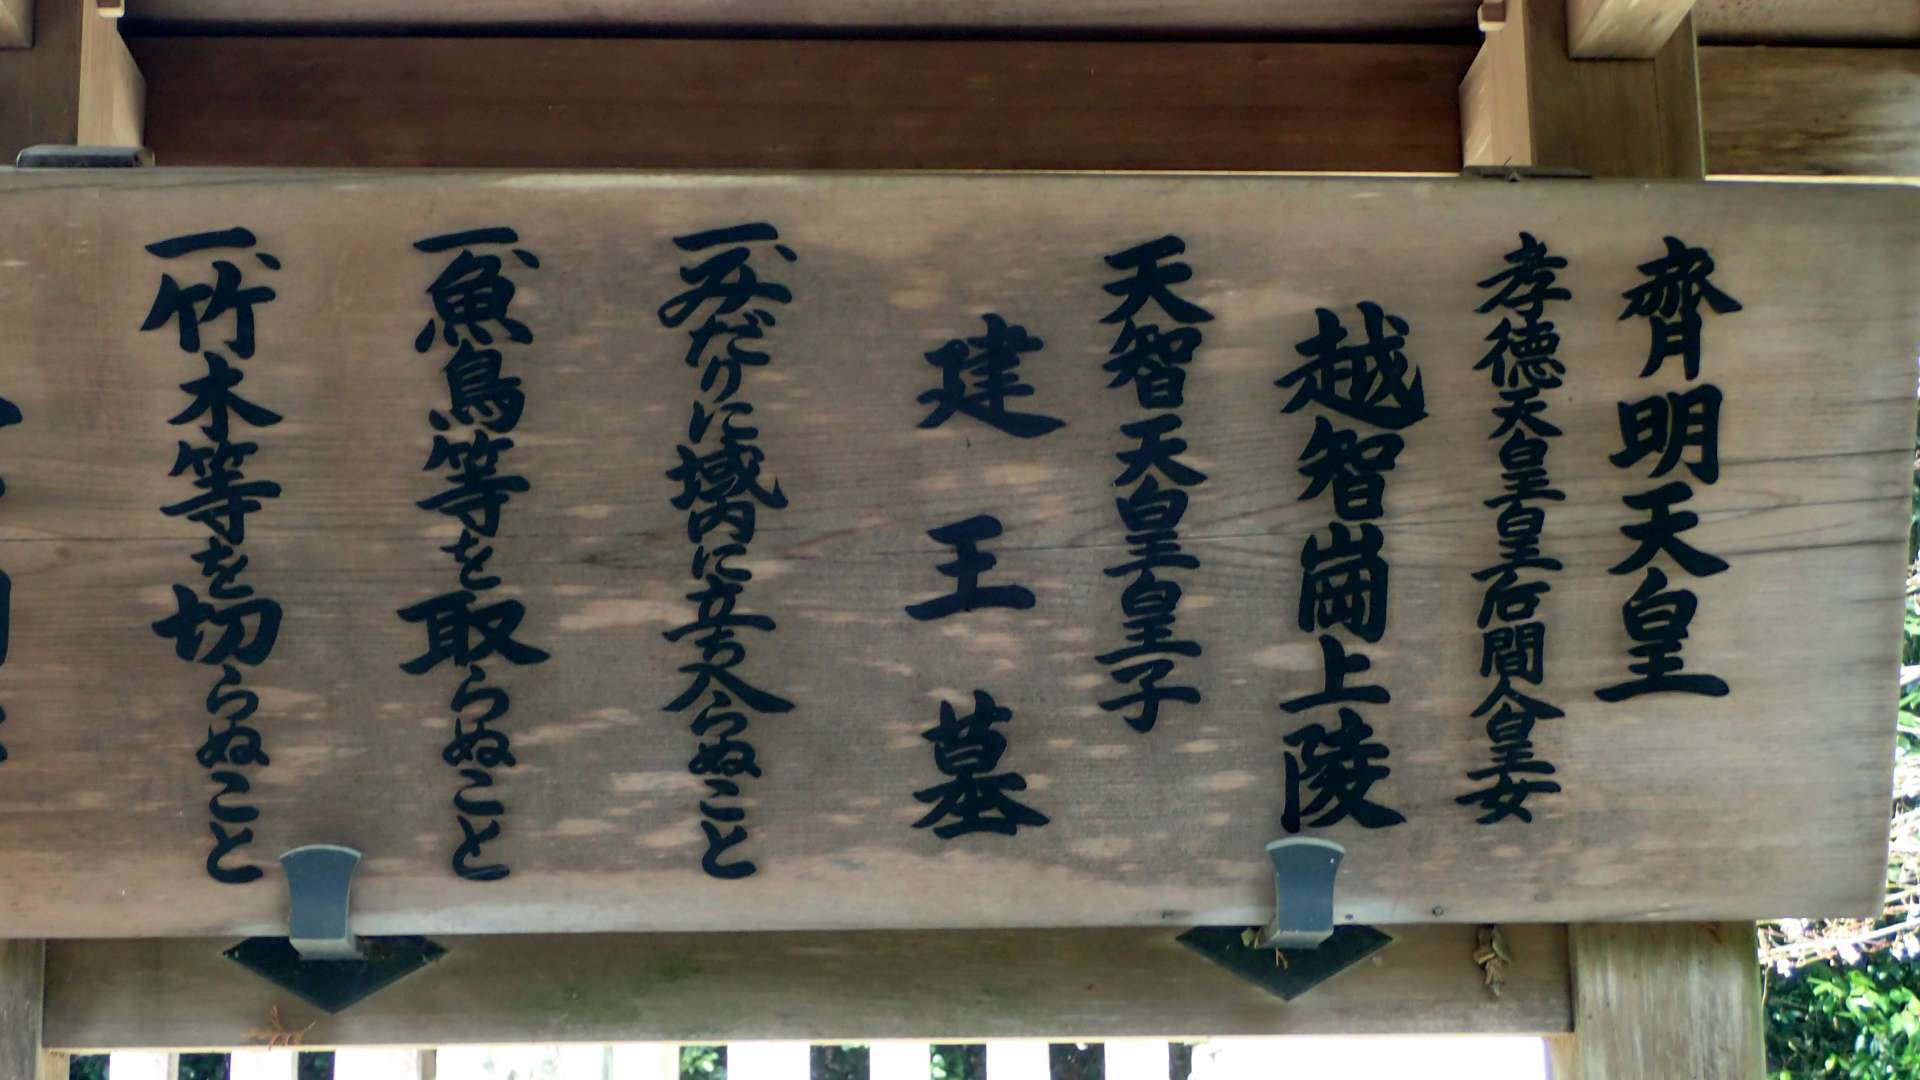 齊明天皇
孝徳天皇皇后間人皇女
越智崗上陵
天智天皇皇子
建王墓
一、みだりに域内に立ち入らぬこと
一、魚鳥等を取らぬこと
一、竹木等を切らぬこと